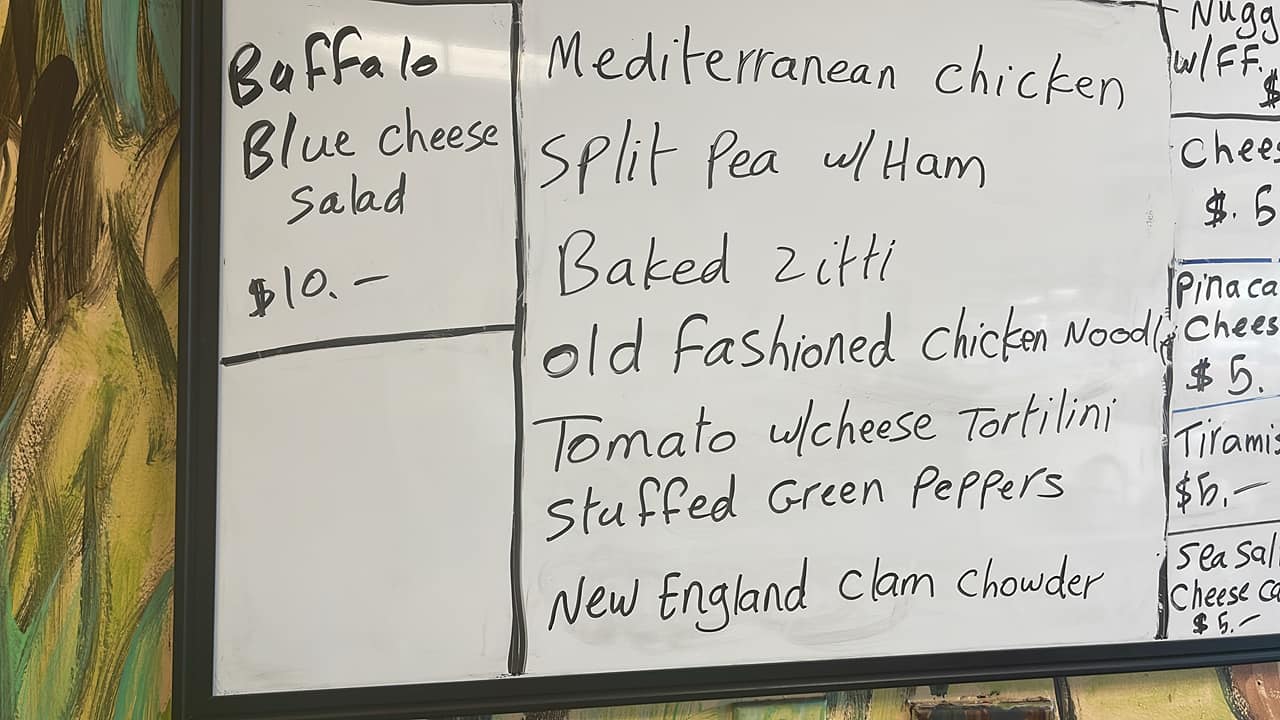 Buffalo
Blue cheese
salad
$10.-
Mediterranean chicken
Split Pea w/ Ham
Baked Zitti
old Fashioned chicken Noodle
Tomato w/cheese Tortilini
Stuffed Green Peppers
New England Clam Chowder
Nugg
w/FF.
$
Chees
$.5
Pinaca
Chees
$5.
Tiramis
$5.-
Sea Sal
Cheese Ca
$5.-